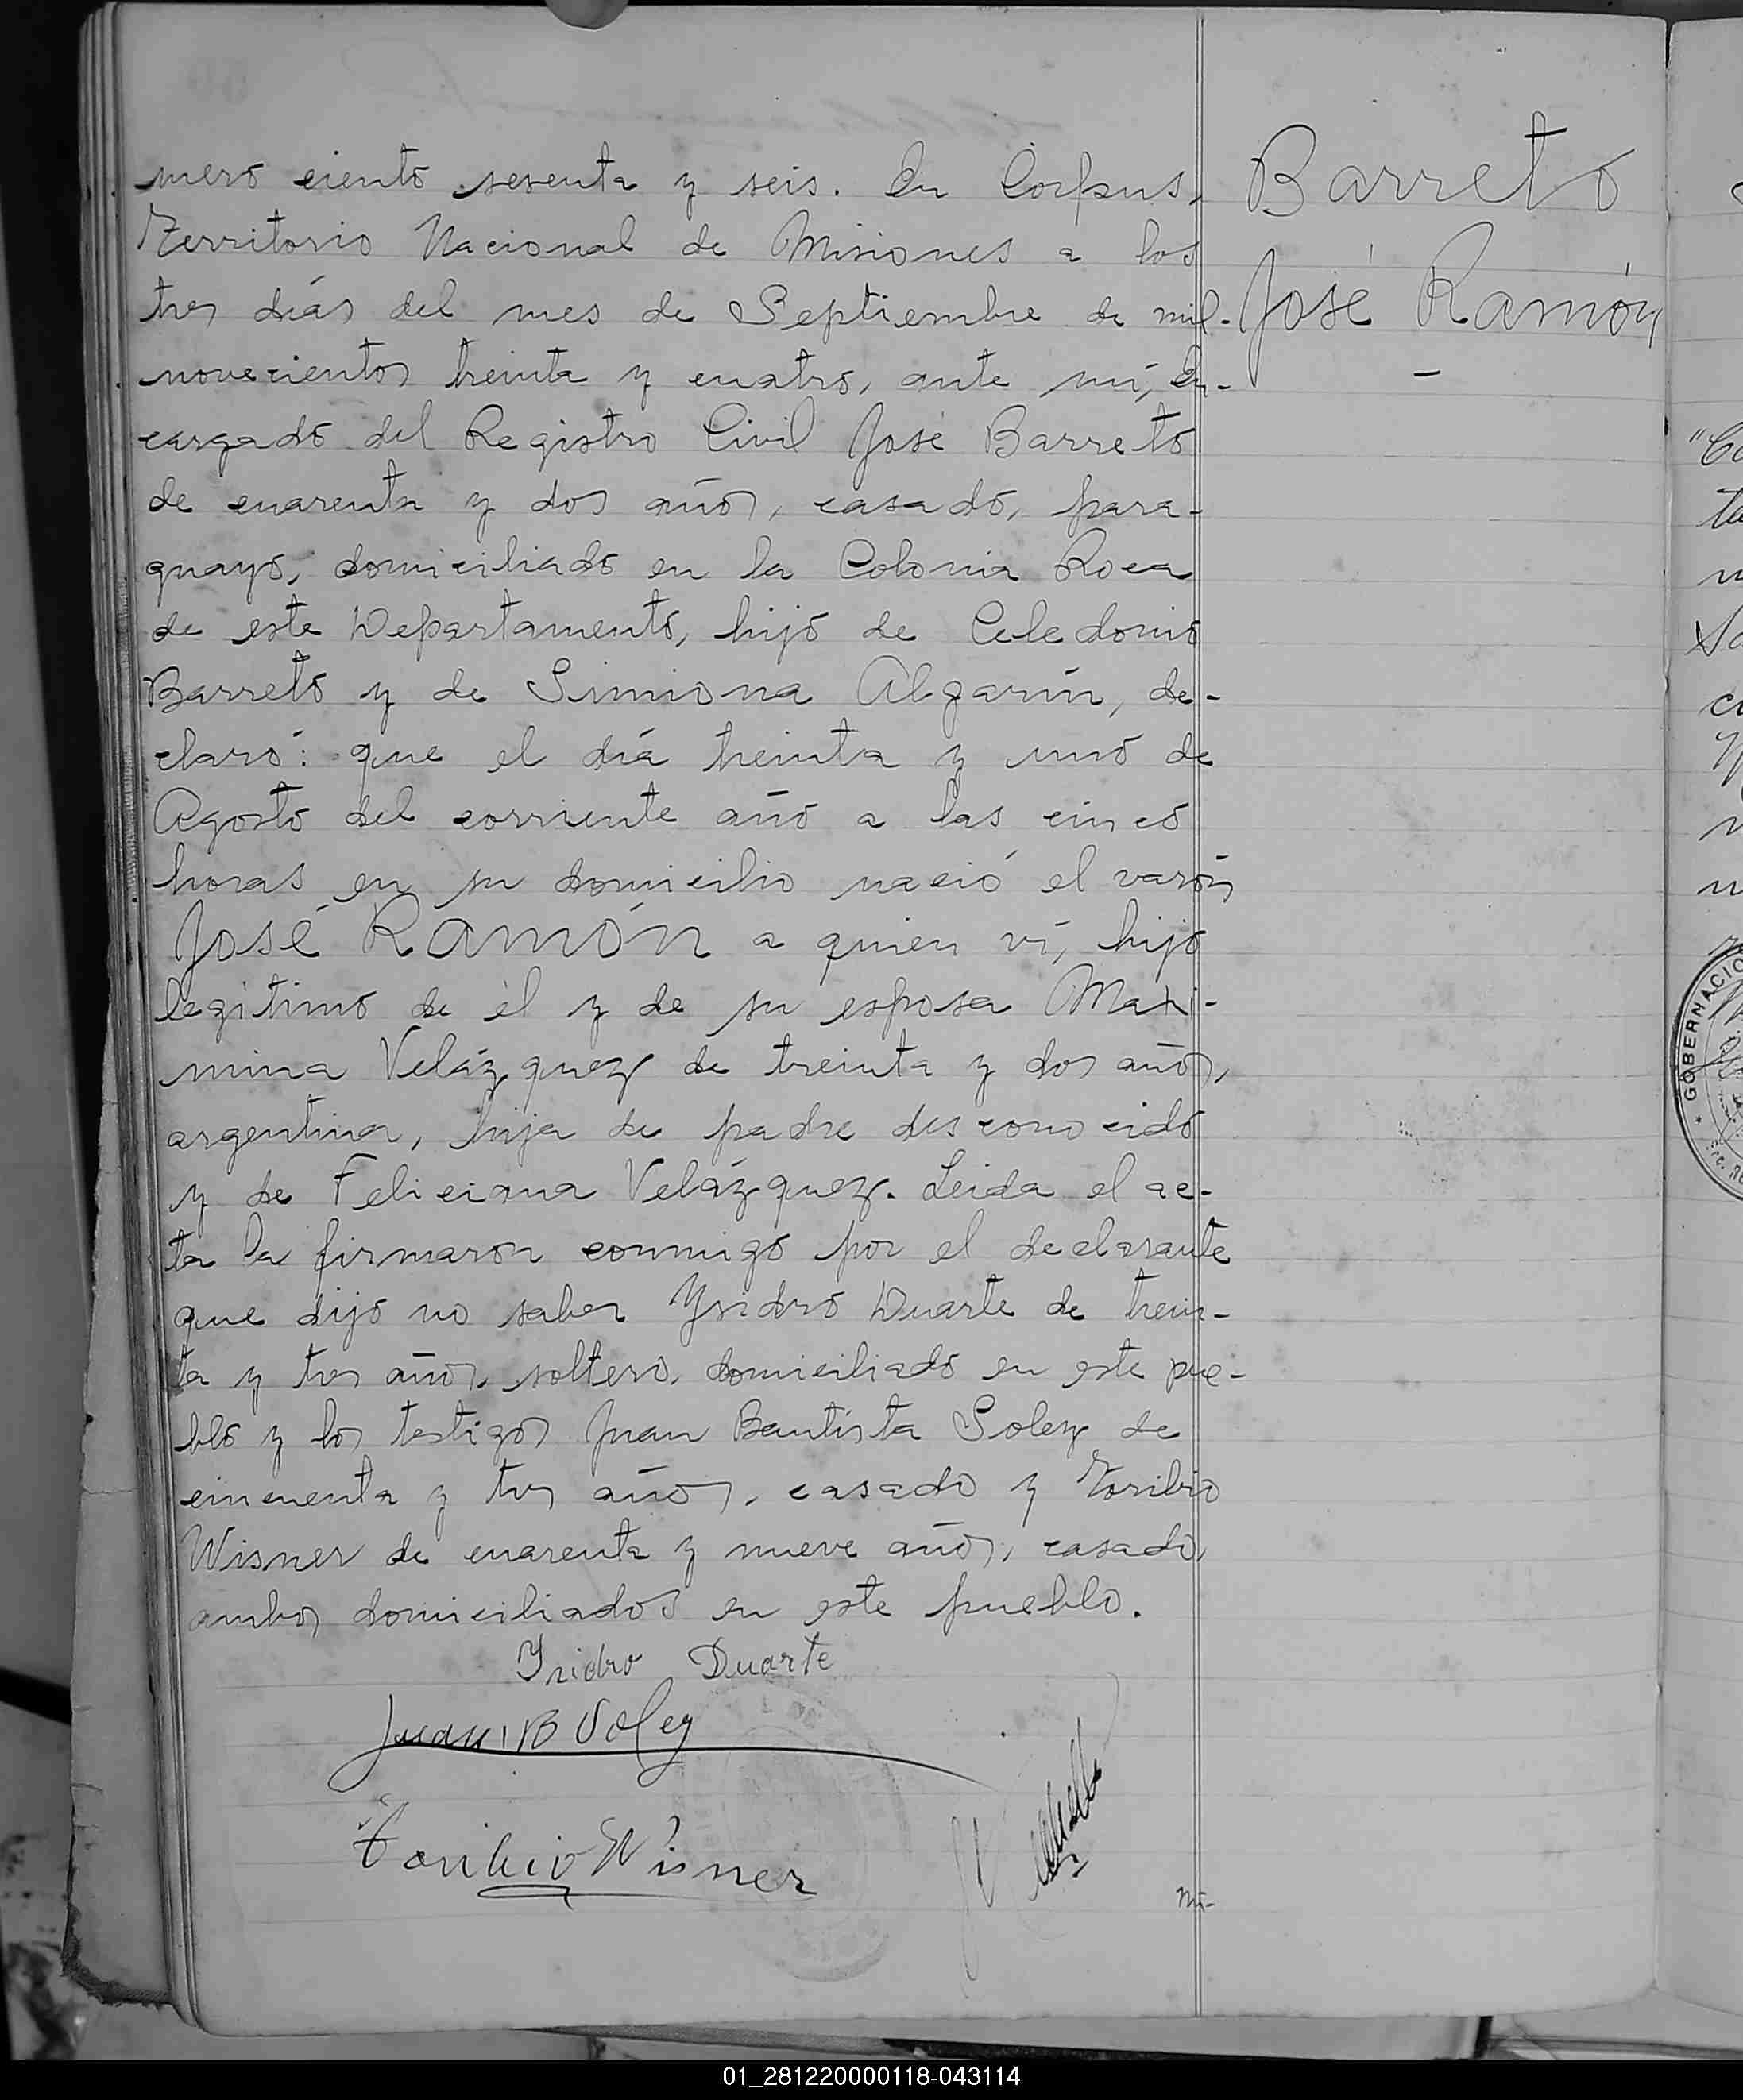 mero ciento sesenta y seis. En Corpus,
Territorio Nacional de Misiones a los
tres días del mes de Septiembre de mil
novecientos treinta y cuatro, ante mí, En-
cargado del Registro Civil José Barreto
de cuarenta y dos años, casado, para-
guayo, domiciliado en la Colonia Roca
de este Departamento, hijo de Celedonio
Barreto y de Simiona Algarín, de-
claró: que el día treinta y uno de
Agosto del corriente año a las cinco
horas en su domicilio nació el varón
José Ramón a quien ví, hijo
legitimo de él y de su esposa Maxi-
mina Velázquez de treinta y dos años,
argentina, hija de padre desconocido
y de Feliciana Velázquez. Leida el ac-
ta la firmaron conmigo por el declarante
que dijo no saber Ysidro Duarte de trein-
ta y tres años, soltero, domiciliado en este pue-
blo y los testigos Juan Bautista Soley de
cincuenta y tres años, casado y Toribio
Wisner de cuarenta y nueve años, casado,
ambos domiciliados en este pueblo.
Ysidro Duarte
Juan B Soley
Toribio Wisner
nú-
Barreto
José Ramón
GOBERNACIO
01_281220000118-043114